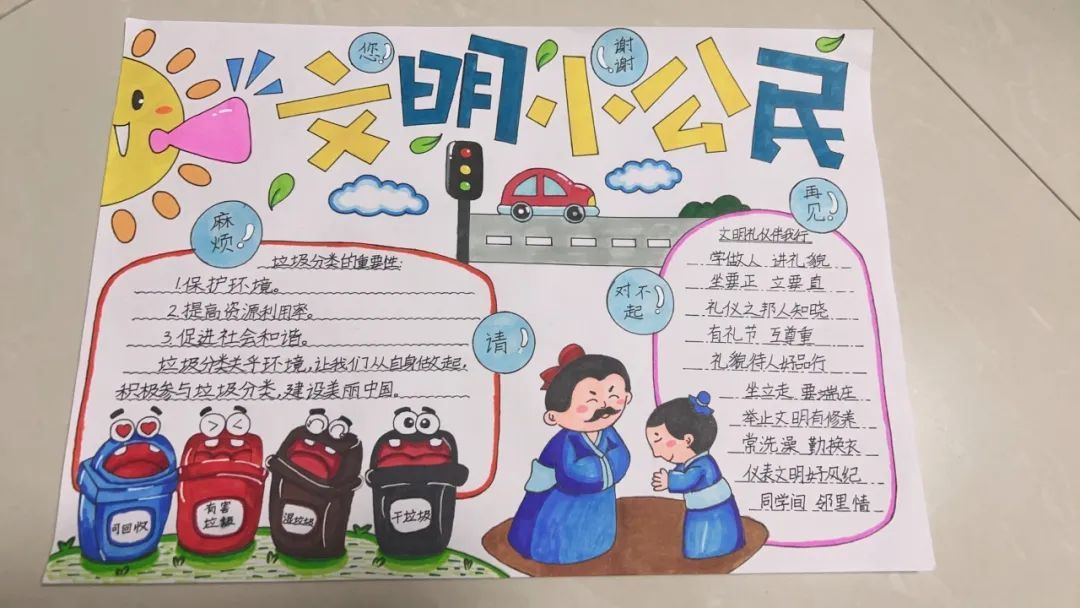 文明小公民
您!
谢谢!
麻烦!
再见!
对不起!
请!
垃圾分类的重要性:
1.保护环境。
2.提高资源利用率。
3.促进社会和谐。
垃圾分类关乎环境,让我们从自身做起,
积极参与垃圾分类,建设美丽中国。
可回收
有害
垃圾
湿垃圾
干垃圾
文明礼仪伴我行
学做人 讲礼貌
坐要正 立要直
礼仪之邦人知晓
有礼节 互尊重
礼貌待人好品行
坐立走 要端庄
举止文明有修养
常洗澡 勤换衣
仪表文明好风纪
同学间 邻里情